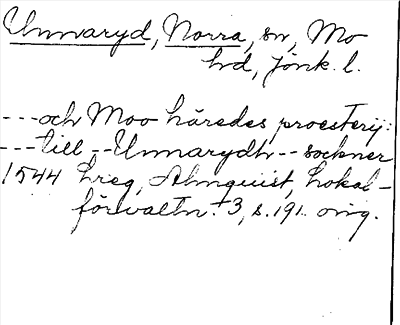 Unnaryd, Norra, sn, Mo
hd, Jönk. l.
---och Moo häredes proesterij:
---till--Unnarydh--sockner
1544 Lreg, Almquist, Lokal-
förvaltn. 3, s. 191. orig.